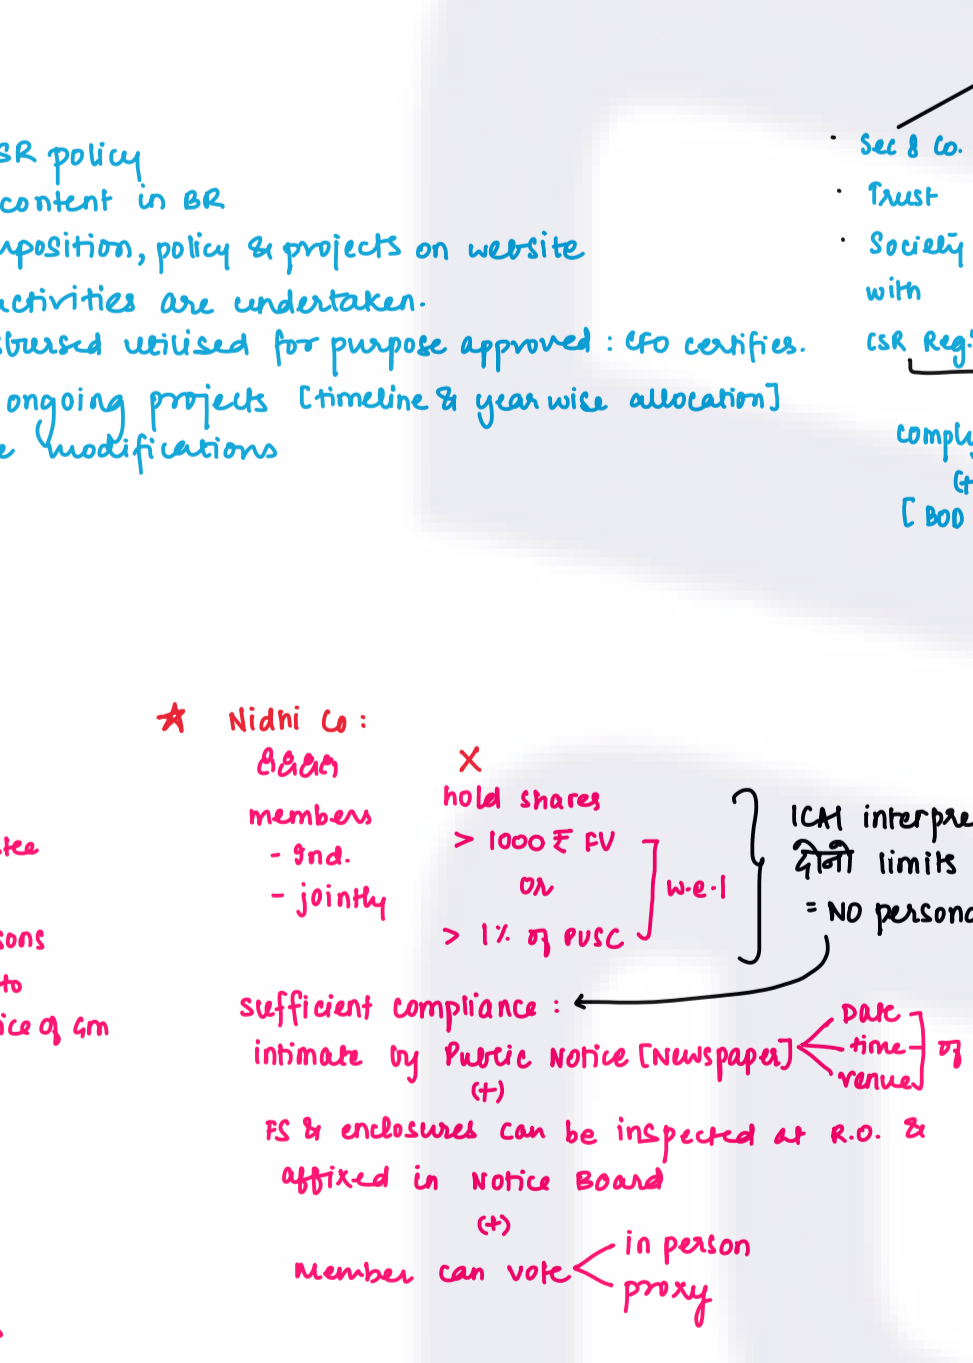 SR policy
content in BR
mposition, policy & projects on website
activities are undertaken.
sbursed utilised for purpose approved : CFO certifies.
ongoing projects [timeline & year wise allocation]
e modifications
· Sec 8 Co.
· Trust
· Society
with
CSR Reg.
comply
[ BOD
★ Nidhi Co :
members
- Ind.
- jointly
X
hold shares
> 1000 ₹ FV
or
> 1% of PUSC
w.e.l
ICAI interpre
दोनो limits
= NO persona
tee
sons
to
ice of GM
Sufficient compliance :
intimate by Public Notice [Newspaper]
Date
time
venue
of
(+)
FS & enclosures can be inspected at R.O. &
affixed in Notice Board
(+)
Member can vote
in person
proxy